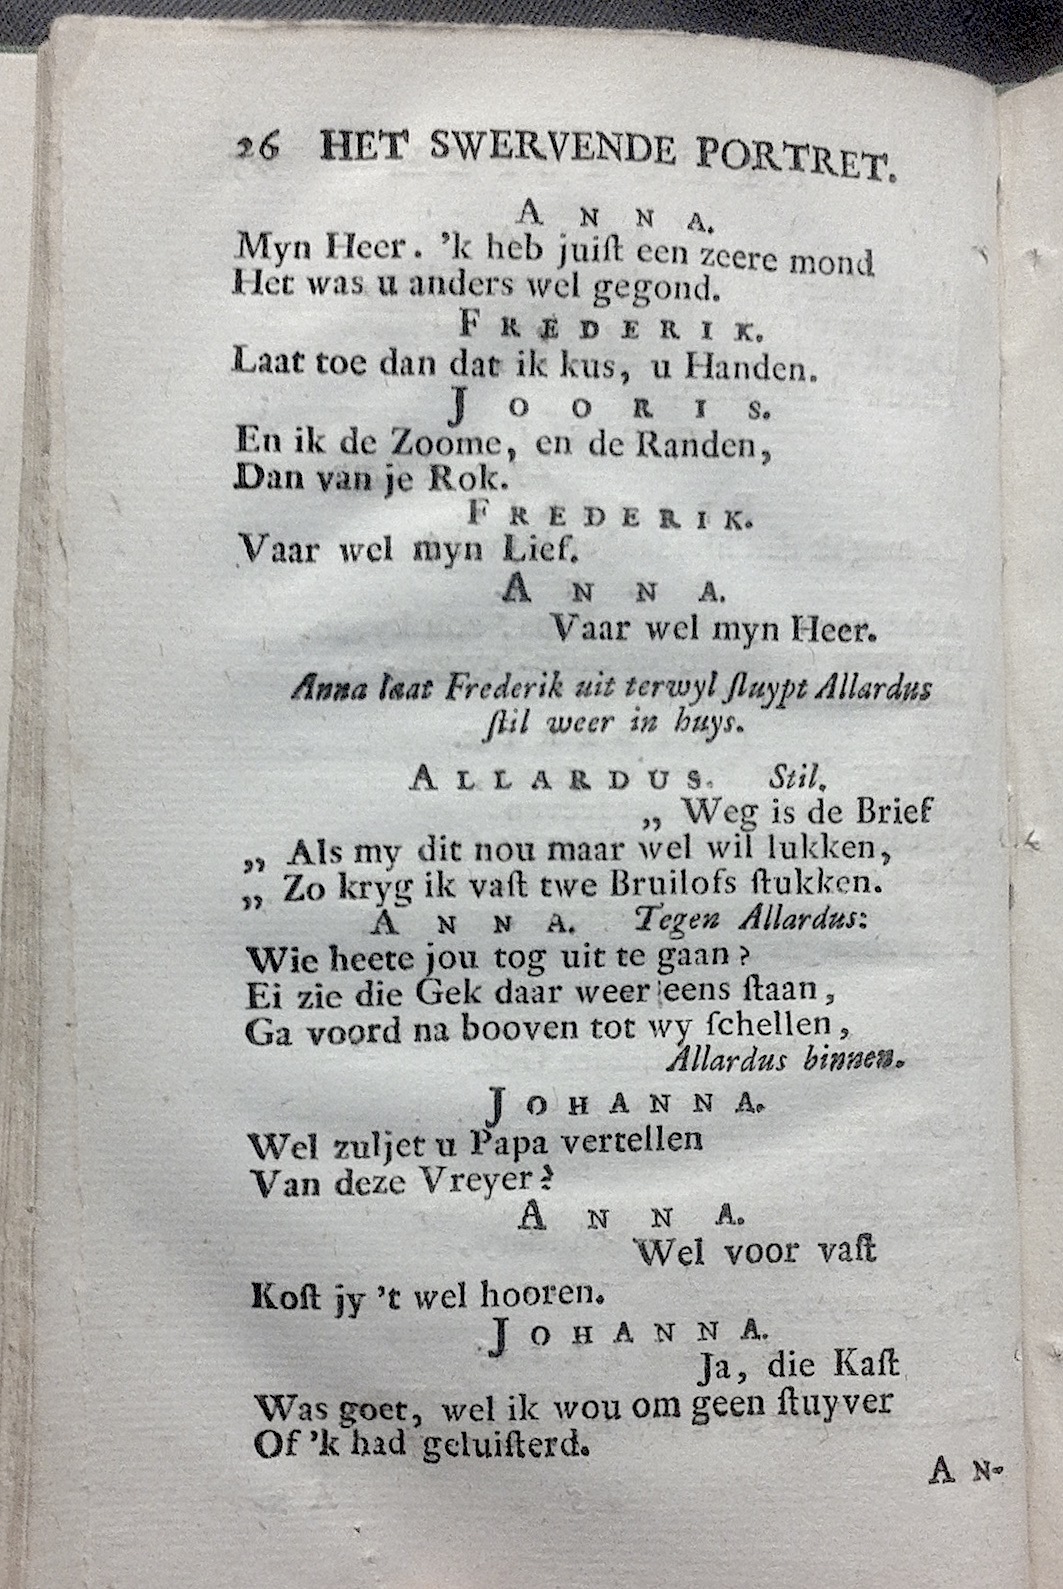 26 HET SWERVENDE PORTRET.
ANNA.
Myn Heer. 'k heb juiſt een zeere mond
Het was u anders wel gegond.
FREDERIK.
Laat toe dan dat ik kus, u Handen.
JOORIS.
En ik de Zoome, en de Randen,
Dan van je Rok.
FREDERIK.
Vaar wel myn Lief.
ANNA.
Vaar wel myn Heer.
Anna laat Frederik uit terwyl ſluypt Allardus
ſtil weer in huys.
ALLARDUS. Stil.
„ Weg is de Brief
„ Als my dit nou maar wel wil lukken,
„ Zo kryg ik vaſt twe Bruilofs ſtukken.
ANNA. Tegen Allardus:
Wie heete jou tog uit te gaan?
Ei zie die Gek daar weer eens ſtaan,
Ga voord na booven tot wy ſchellen,
Allardus binnen.
JOHANNA.
Wel zuljet u Papa vertellen
Van deze Vreyer?
ANNA.
Wel voor vaſt
Koſt jy 't wel hooren.
JOHANNA.
Ja, die Kaſt
Was goet, wel ik wou om geen ſtuyver
Of 'k had geluiſterd.
AN-